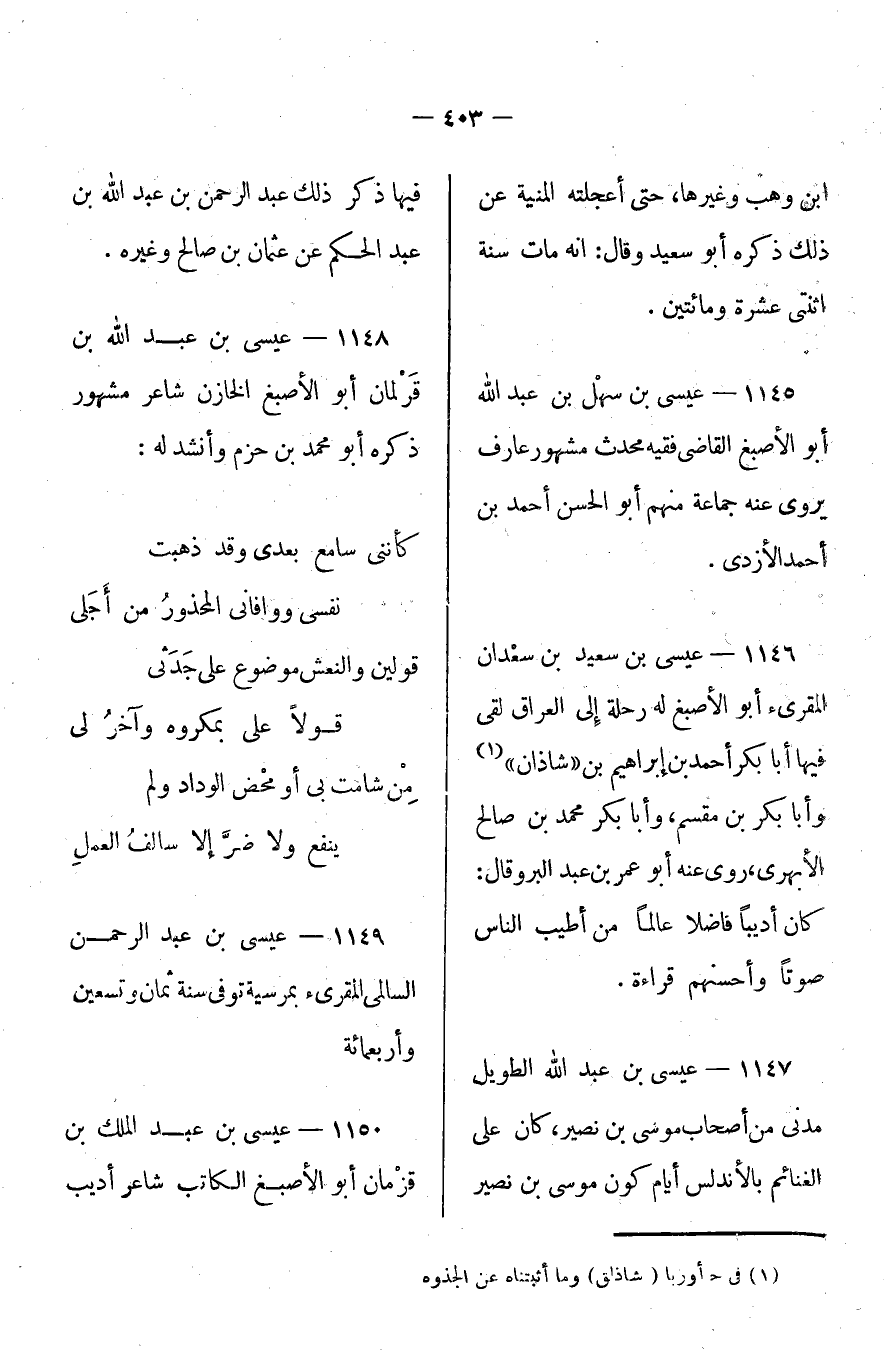 — ٤٠٣ —
ابن وهب وغيرها، حتى أعجلته المنية عن
ذلك ذكره أبو سعيد وقال: انه مات سنة
اثنتى عشرة ومائتين .
١١٤٥ — عيسى بن سهْل بن عبد الله
أبو الأصبغ القاضى فقيه محدث مشهور عارف
يروى عنه جماعة منهم أبو الحسن أحمد بن
أحمد الأزدى .
١١٤٦ — عيسى بن سعيد بن سعْدان
المقرىء أبو الأصبغ له رحلة إلى العراق لقى
فيها أبا بكر أحمد بن إبراهيم بن «شاذان»(١)
وأبا بكر بن مقسم، وأبا بكر محمد بن صالح
الأبهرى، روى عنه أبو عمر بن عبد البر وقال:
كان أديباً فاضلا عالماً من أطيب الناس
صوتاً وأحسنهم قراءة .
١١٤٧ — عيسى بن عبد الله الطويل
مدنى من أصحاب موسى بن نصير، كان على
الغنائم بالأندلس أيام كون موسى بن نصير
فيها ذكر ذلك عبد الرحمن بن عبد الله بن
عبد الحكم عن عثمان بن صالح وغيره .
١١٤٨ — عيسى بن عبد الله بن
قَرْلمان أبو الأصبغ الخازن شاعر مشهور
ذكره أبو محمد بن حزم وأنشد له :
كأننى سامع بعدى وقد ذهبت
نفسى ووافانى المحذورُ من أَجَلى
قولين والنعش موضوع على جَدَثى
قولاً على بمكروه وآخرُ لى
مِنْ شامت بى أو محْض الوداد ولم
ينفع ولا ضرَّ إلا سالفُ العملِ
١١٤٩ — عيسى بن عبد الرحمن
السالمى المقرىء بمرسية توفى سنة ثمان وتسعين
وأربعمائة
١١٥٠ — عيسى بن عبد الملك بن
قزْمان أبو الأصبغ الكاتب شاعر أديب
(١) فى ـ أوربا ( شاذلق) وما أثبتناه عن الجذوه